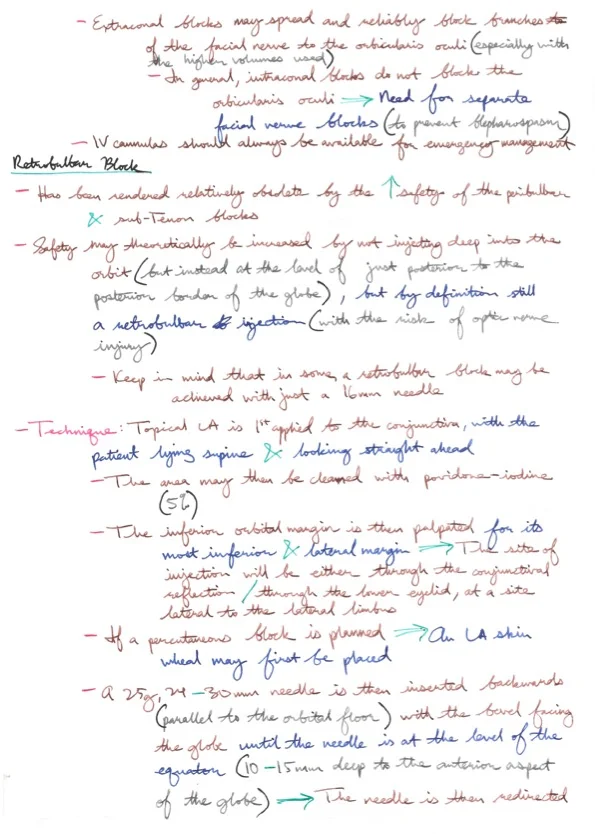 - Extraconal blocks may spread and reliably block branches to
of the facial nerve to the orbicularis oculi (especially with
the higher volumes used)
- In general, intraconal blocks do not block the
orbicularis oculi → Need for separate
facial nerve blocks (to prevent blepharospasm)
- IV cannulas should always be available for emergency management
Retrobulbar Block
- Has been rendered relatively obsolete by the ↑ safety of the peribulbar
& sub-Tenon blocks
- Safety may theoretically be increased by not injecting deep into the
orbit (but instead at the level of just posterior to the
posterior border of the globe), but by definition still
a retrobulbar injection (with the risk of optic nerve
injury)
- Keep in mind that in some, a retrobulbar block may be
achieved with just a 16mm needle
- Technique: Topical LA is 1st applied to the conjunctiva, with the
patient lying supine & looking straight ahead
- The area may then be cleaned with povidone-iodine
(5%)
- The inferior orbital margin is then palpated for its
most inferior & lateral margin → The site of
injection will be either through the conjunctival
reflection / through the lower eyelid, at a site
lateral to the lateral limbus
- If a percutaneous block is planned → An LA skin
wheal may first be placed
- A 25g, 24-30mm needle is then inserted backwards
(parallel to the orbital floor) with the bevel facing
the globe until the needle is at the level of the
equator (10-15mm deep to the anterior aspect
of the globe) → The needle is then redirected